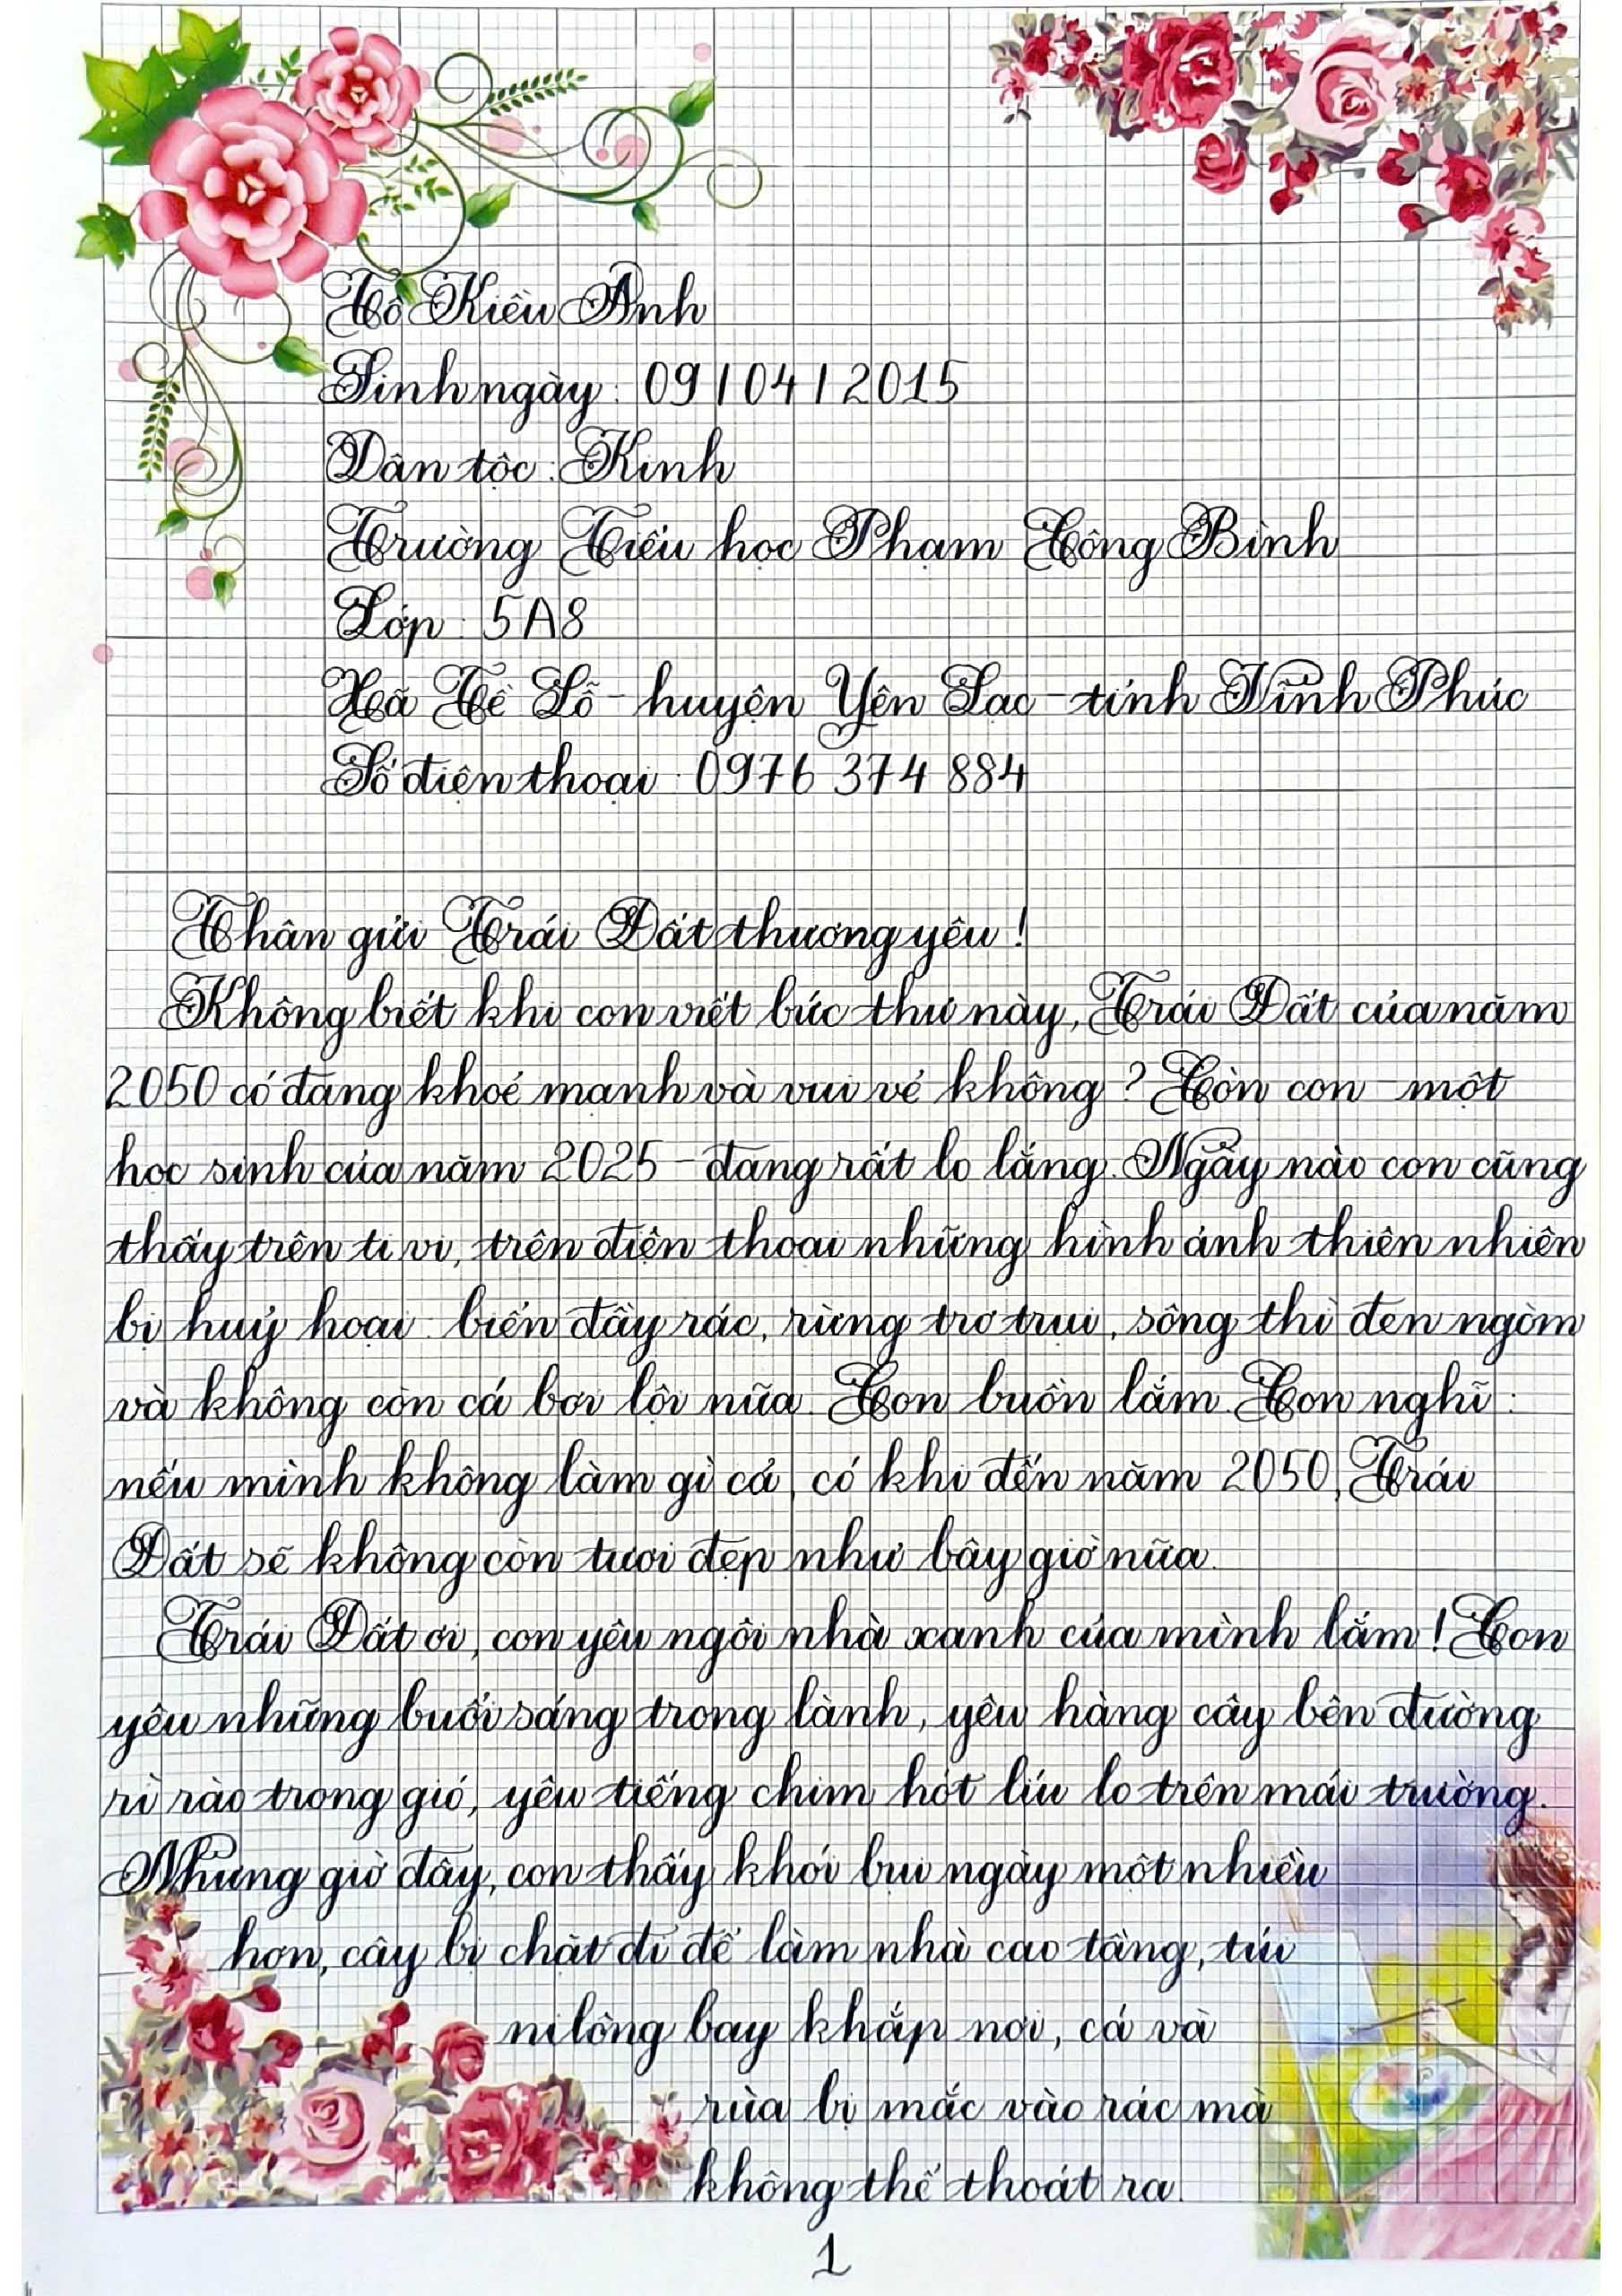 Tô Kiều Anh
Sinh ngày: 09/04/2015
Dân tộc: Kinh
Trường Tiểu học Phạm Công Bình
Lớp: 5A8
Xã Tề Lỗ - huyện Yên Lạc - tỉnh Vĩnh Phúc
Số điện thoại: 0976 374 884
Thân gửi Trái Đất thương yêu!
Không biết khi con viết bức thư này, Trái Đất của năm
2050 có đang khoẻ mạnh và vui vẻ không? Còn con - một
học sinh của năm 2025 - đang rất lo lắng. Ngày nào con cũng
thấy trên ti vi, trên điện thoại những hình ảnh thiên nhiên
bị huỷ hoại: biển đầy rác, rừng trơ trụi, sông thì đen ngòm
và không còn cá bơi lội nữa. Con buồn lắm. Con nghĩ:
nếu mình không làm gì cả, có khi đến năm 2050, Trái
Đất sẽ không còn tươi đẹp như bây giờ nữa.
Trái Đất ơi, con yêu ngôi nhà xanh của mình lắm! Con
yêu những buổi sáng trong lành, yêu hàng cây bên đường
rì rào trong gió, yêu tiếng chim hót líu lo trên mái trường.
Nhưng giờ đây, con thấy khói bụi ngày một nhiều
hơn, cây bị chặt đi để làm nhà cao tầng, túi
nilông bay khắp nơi, cá và
rùa bị mắc vào rác mà
không thể thoát ra.
1